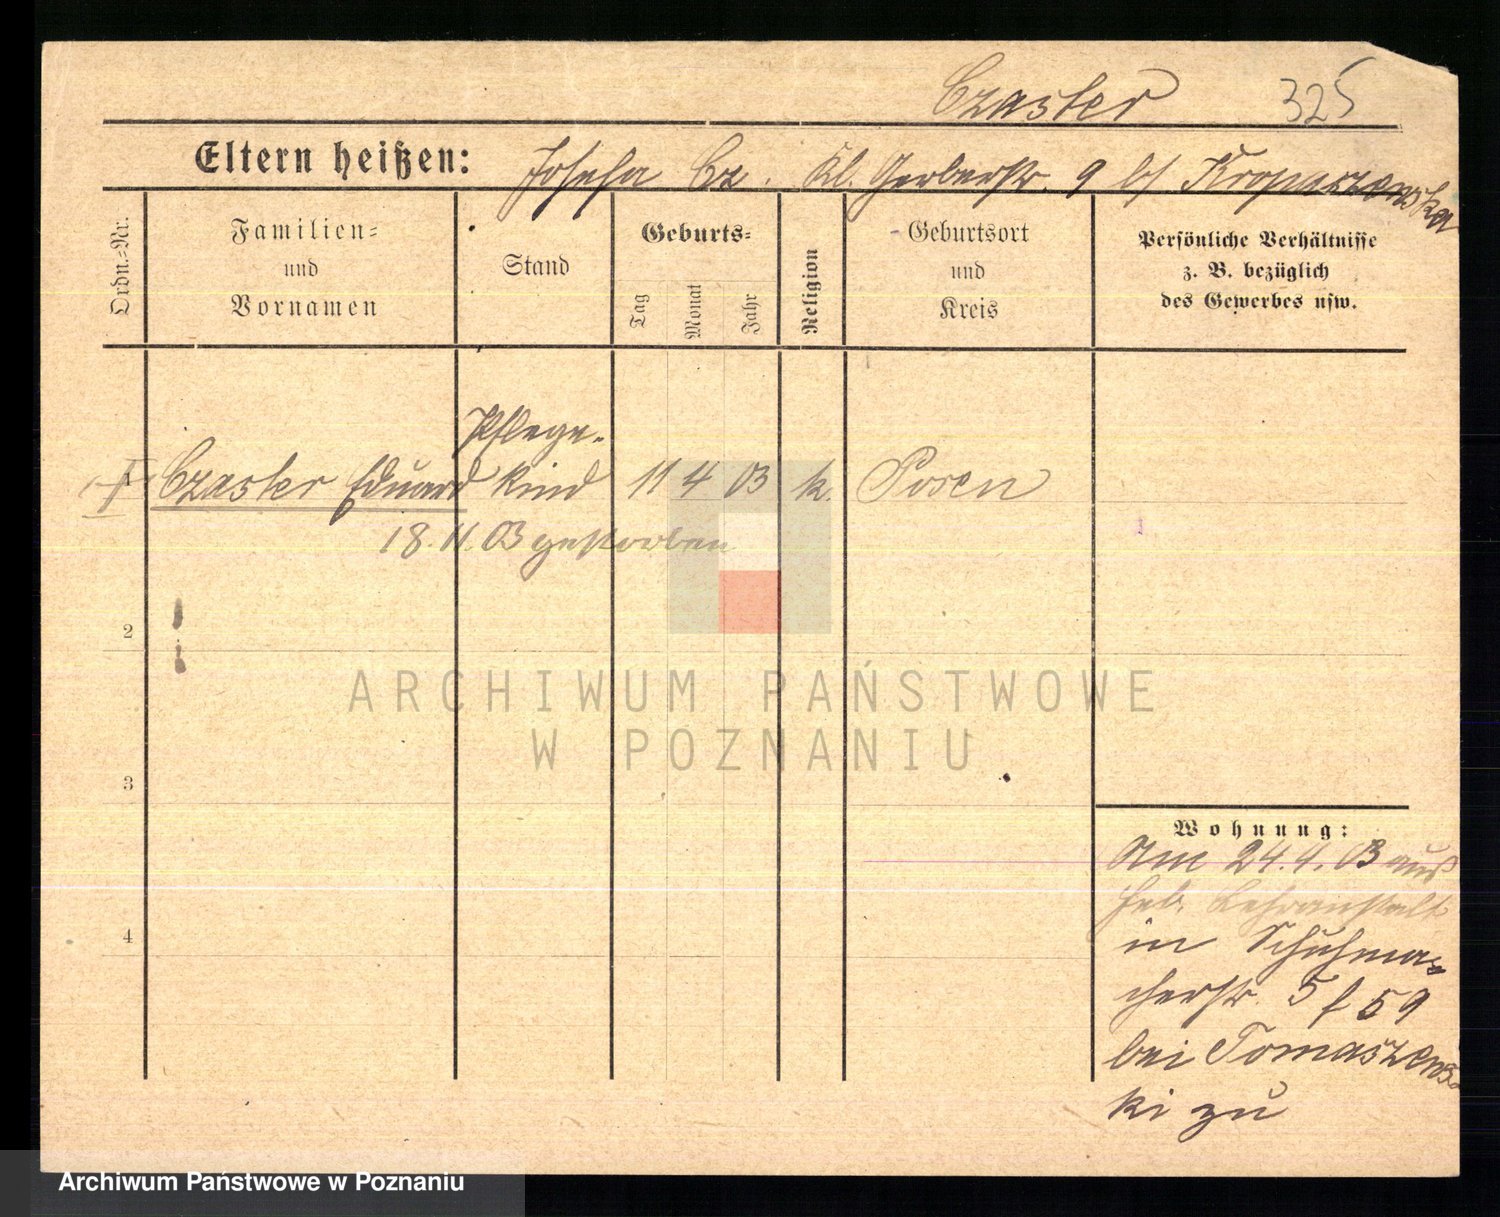 Czaster 325
Eltern heißen: Josefa Cz. Kl. Gerberstr. 9 bei Kropaszewska
Ordn.-Nr.
Familien-
und
Vornamen
Stand
Geburts-
Tag
Monat
Jahr
Religion
Geburtsort
und
Kreis
Persönliche Verhältnisse
z. B. bezüglich
des Gewerbes usw.
Pflege-
1 Czaster Eduard kind 11 4 03 k. Posen
18.11.03 gestorben
2
3
4
ARCHIWUM PAŃSTWOWE
W POZNANIU
Wohnung:
Am 24.4.03 aus
Heb. Lehranstalt
in Schuhma-
cherstr. 5 f 59
bei Tomaszews-
ki zu
Archiwum Państwowe w Poznaniu